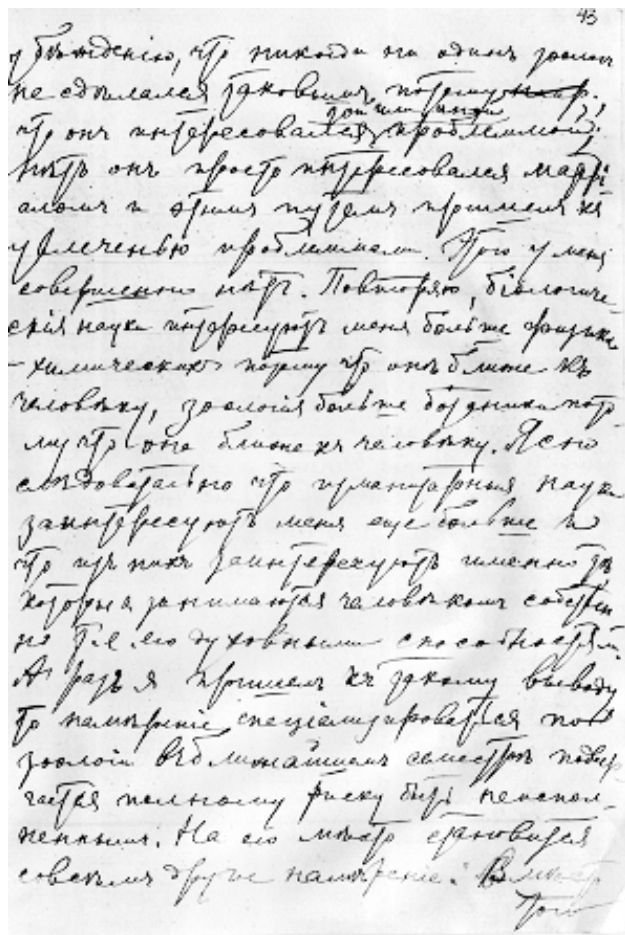 43
убѣжденію, что никогда ни одинъ зоологъ
не сдѣлался таковымъ потому
той или иной
что онъ интересовался проблеммой;
нѣтъ онъ просто интересовался матері-
аломъ и этимъ путемъ пришелъ къ
увлеченью проблеммами. Этого у меня
совершенно нѣтъ. Повторяю, біологиче-
скія науки интересуютъ меня больше физико
-химическихъ потому что онѣ ближе къ
человѣку, зоологія больше ботаники пото
му что она ближе къ человѣку. Ясно
слѣдовательно что гуманитарныя науки
заинтересуютъ меня еще больше и
что изъ нихъ заинтересуютъ именно тѣ
которыя занимаются человѣкомъ собствен
но т.е его духовными способностями.
А разъ я пришелъ къ такому выводу
то намѣреніе спеціализироваться по
зоологіи въ ближайшемъ семестрѣ подвер
гается полному риску быть неиспол-
неннымъ. На его мѣсто становится
совсѣмъ другое намѣреніе: Вмѣсто
того